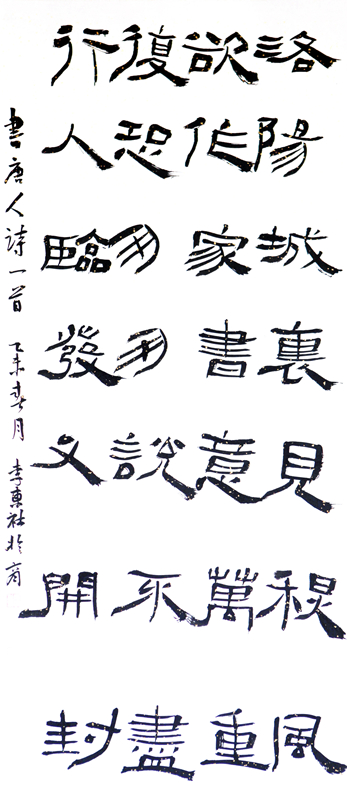 洛陽城裏見秋風
欲作家書意萬重
復恐匆匆說不盡
行人臨發又開封
書唐人詩一首 乙未春月 李東社於商